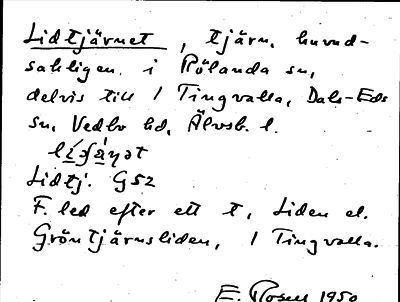 Lidtjärnet, tjärn, huvud-
sakligen i Rölanda sn,
delvis till 1 Tingvalla, Dals-Eds
sn, Vedbo hd, Älvsb. l.
Lidtj. G52
F. led efter ett t, Liden el.
Gröntjärnsliden, 1 Tingvalla.
E. Rosell 1950